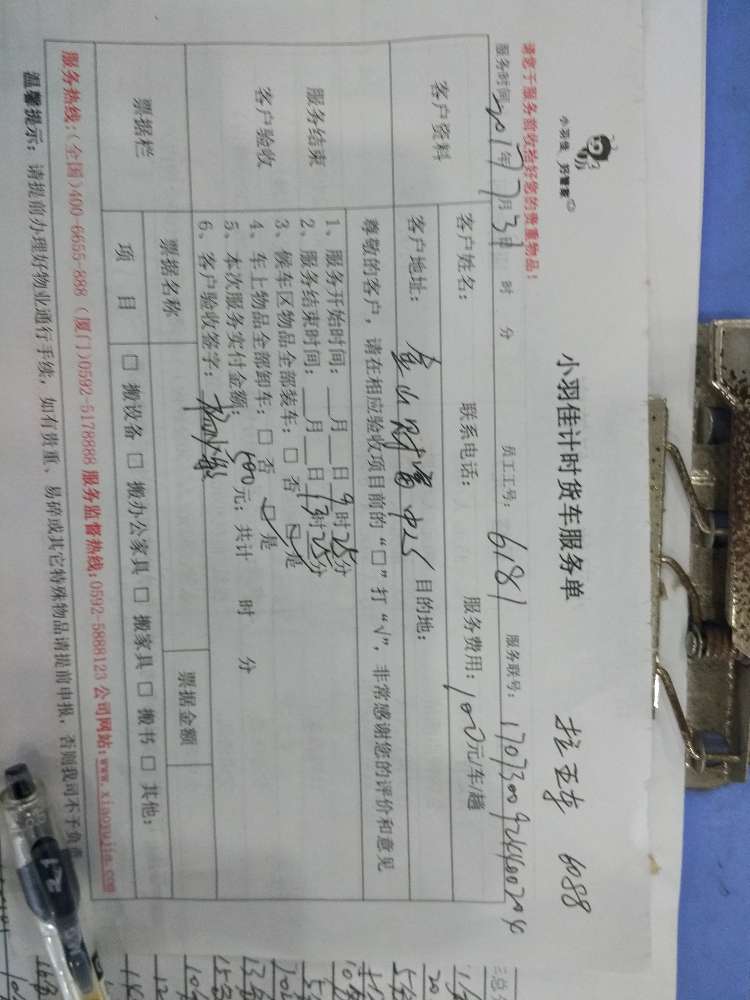 小羽佳 好管家
小羽佳计时货车服务单
6088
请您于服务前收捡好您的贵重物品!
服务时间: 2017年7月31日 时 分 员工工号: 6181 服务联号:
客户资料
客户姓名: 联系电话: 服务费用: 100元/车/趟
客户地址: 金山财富中心 目的地:
尊敬的客户,请在相应验收项目前的“□”打“√”,非常感谢您的评价和意见
服务结束
客户验收
1、服务开始时间: 月 日 9时25分
2、服务结束时间: 月 日 时25分
3、候车区物品全部装车: □ 否 □ 是
4、车上物品全部卸车: □ 否 □ 是
5、本次服务实付金额 500元; 共计 时 分
6、客户验收签字:
票据栏
票据名称 票据金额
项 目 □ 搬设备 □ 搬办公家具 □ 搬家具 □ 搬书 □ 其他:
服务热线:(全国)400-6655-888 (厦门)0592-5178888 服务监督热线:0592-5888123 公司网站:www.xiaoyujia.com
温馨提示: 请提前办理好物业通行手续,如有贵重、易碎或其它特殊物品请提前申报,否则我司不予负责